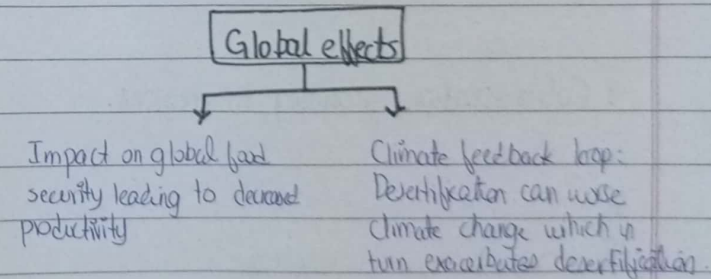 Global effects
Impact on global food
security leading to decreased
productivity
Climate feedback loop:
Desertification can worse
climate change which in
turn exacerbates desertification.